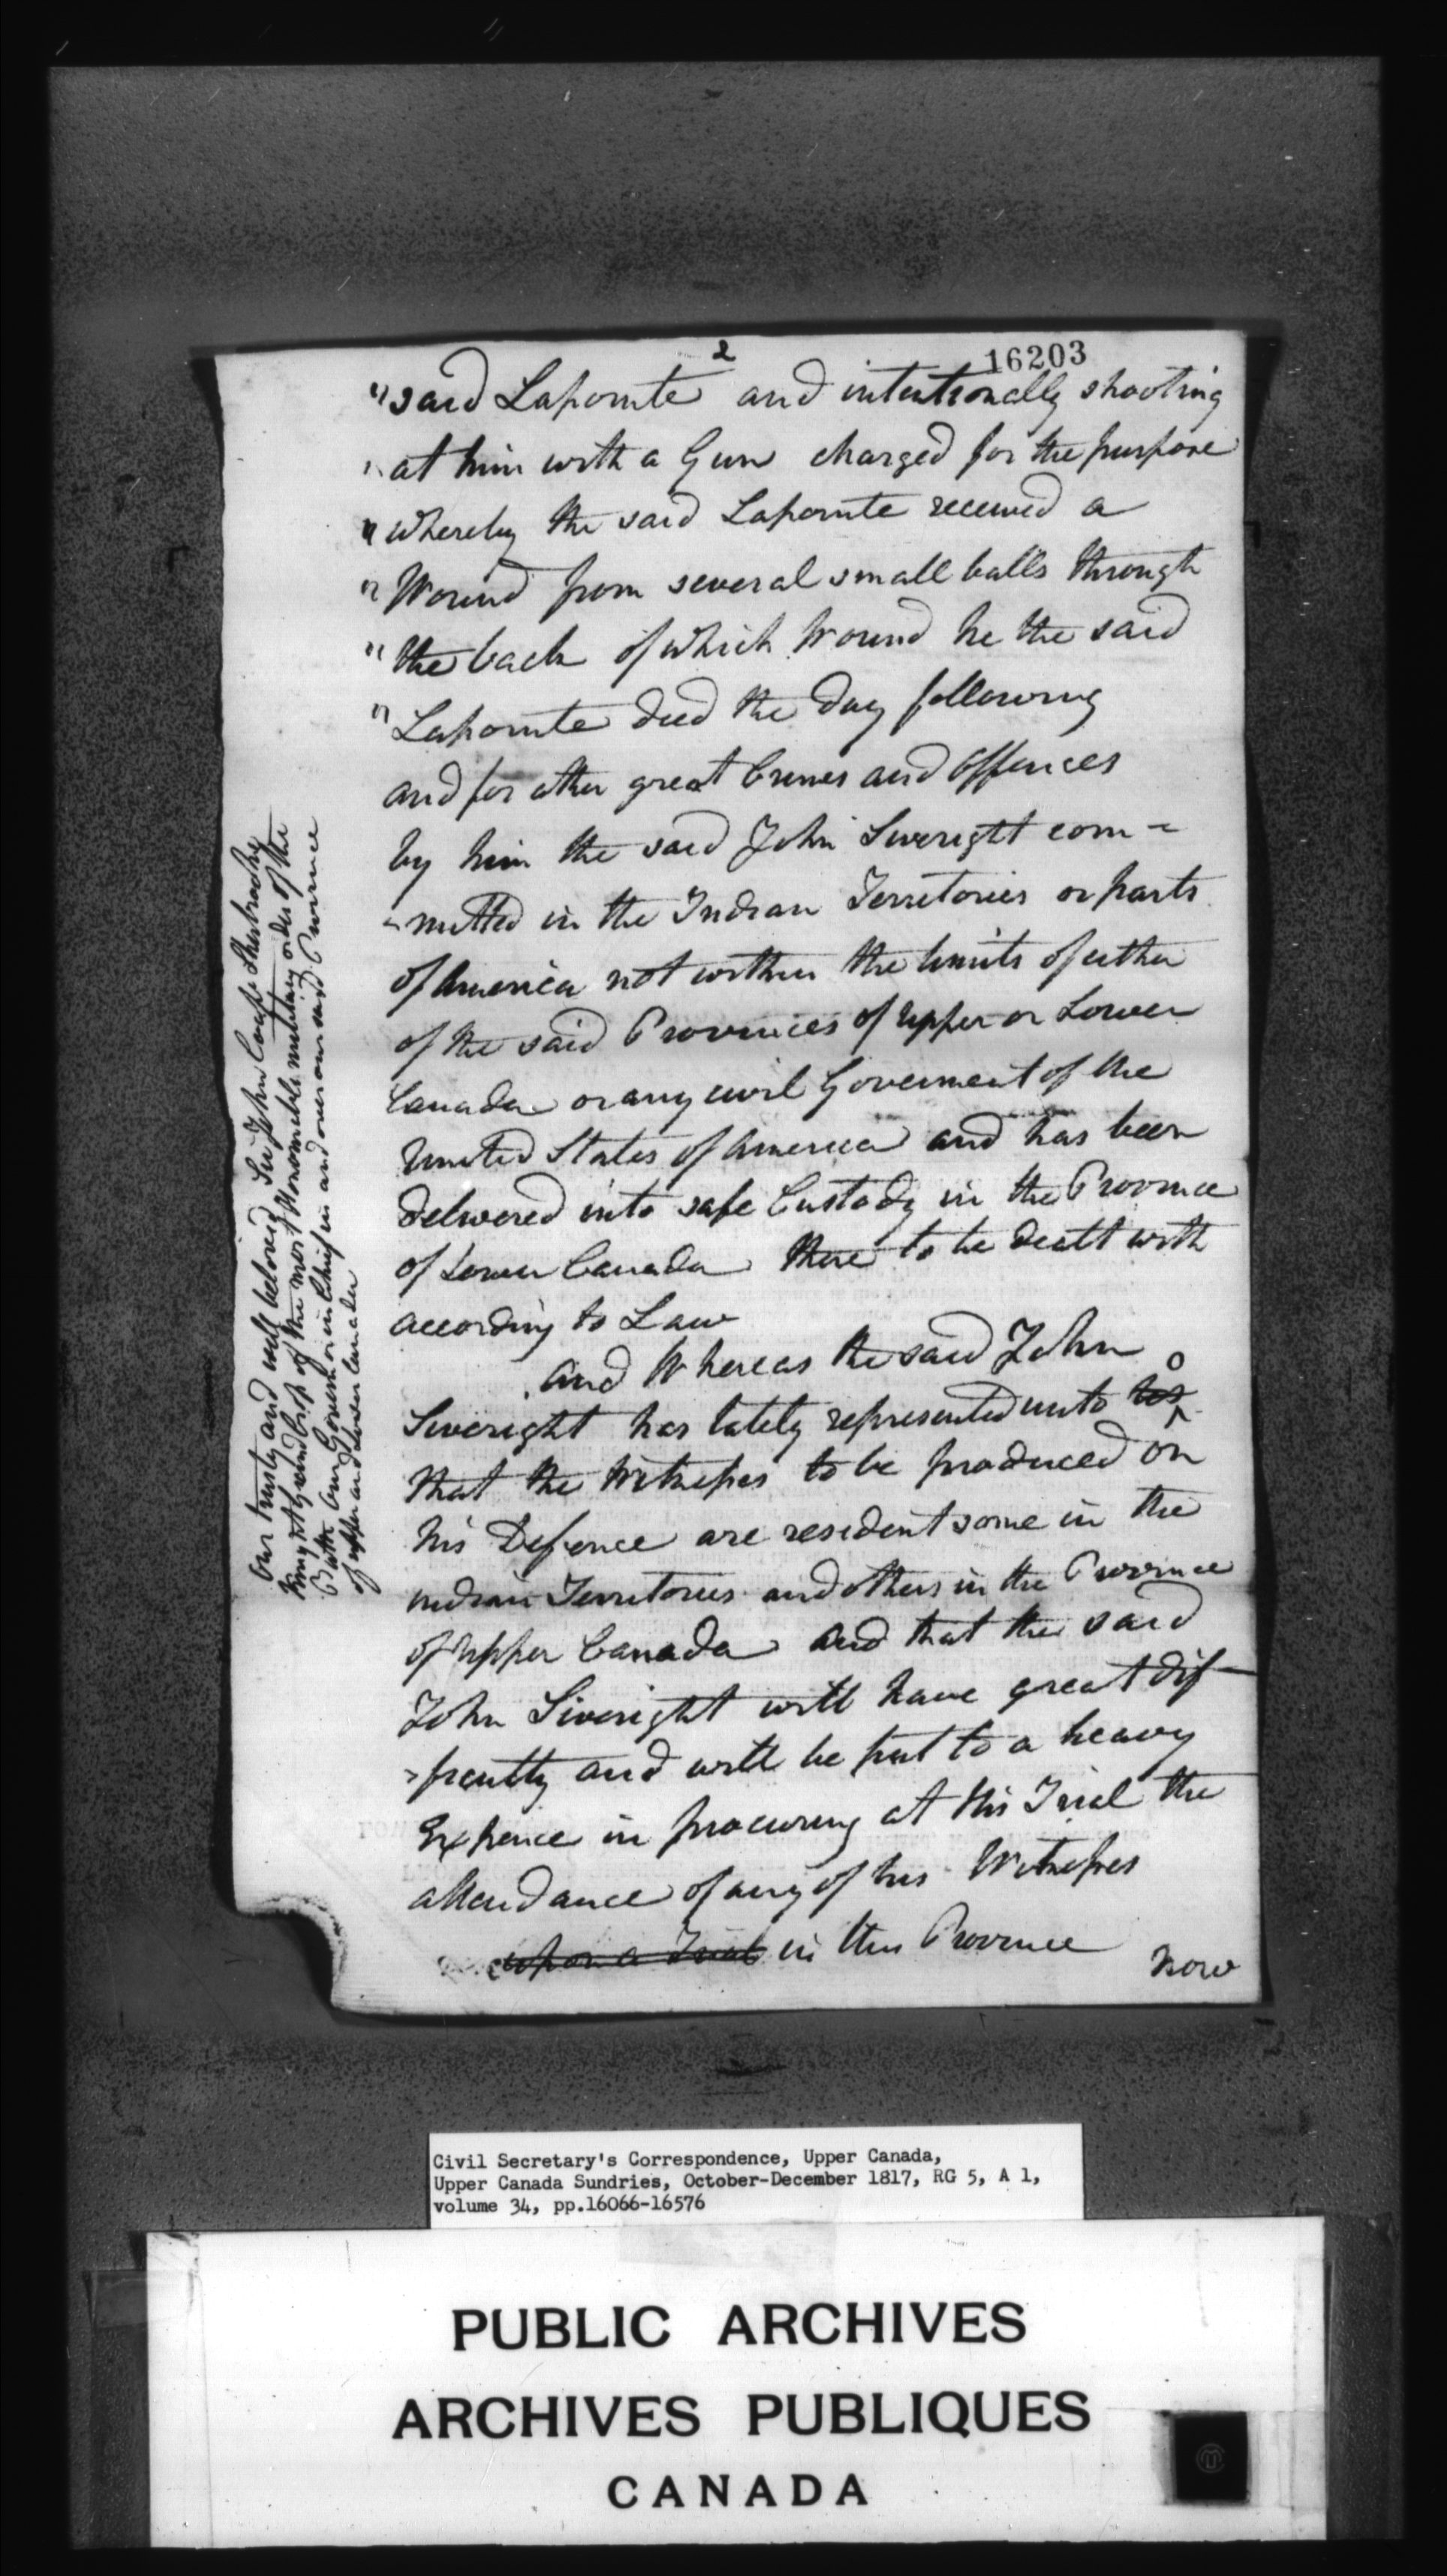 2
16203
"said Lapointe and intentionally shooting
"at him with a Gun charged for the purpose
"whereby the said Lapointe received a
"Wound from several small balls through
"the back of which Wound he the said
"Lapointe died the day following
and for other great Crimes and Offences
by him the said John Siveright com-
-mitted in the Indian Territories or parts
of America not within the limits of either
of the said Provinces of Upper or Lower
Canada or any civil Goverment of the
United States of America and has been
delivered into safe Custody in the Province
of Lower Canada there to be dealt with
according to Law
And Whereas the said John
Siveright has lately represented unto
o
that the Witnesses to be produced on
his Defence are resident some in the
Indian Territories and others in the Province
of Upper Canada And that the said
John Siveright will have great dif-
-ficulty and will be put to a heavy
Expence in procuring at this Trial the
attendance of any of his Witnesses
upon a Trial in this Province
Now
Our trusty and well beloved Sir John Coape Sherbrooke
Knight Grand Cross of the most Honorable military order of the
Bath Our Governor in Chief in and over our said Province
of upper and Lower Canada
Civil Secretary's Correspondence, Upper Canada,
Upper Canada Sundries, October-December 1817, RG 5, A 1,
volume 34, pp.16066-16576
PUBLIC ARCHIVES
ARCHIVES PUBLIQUES
CANADA